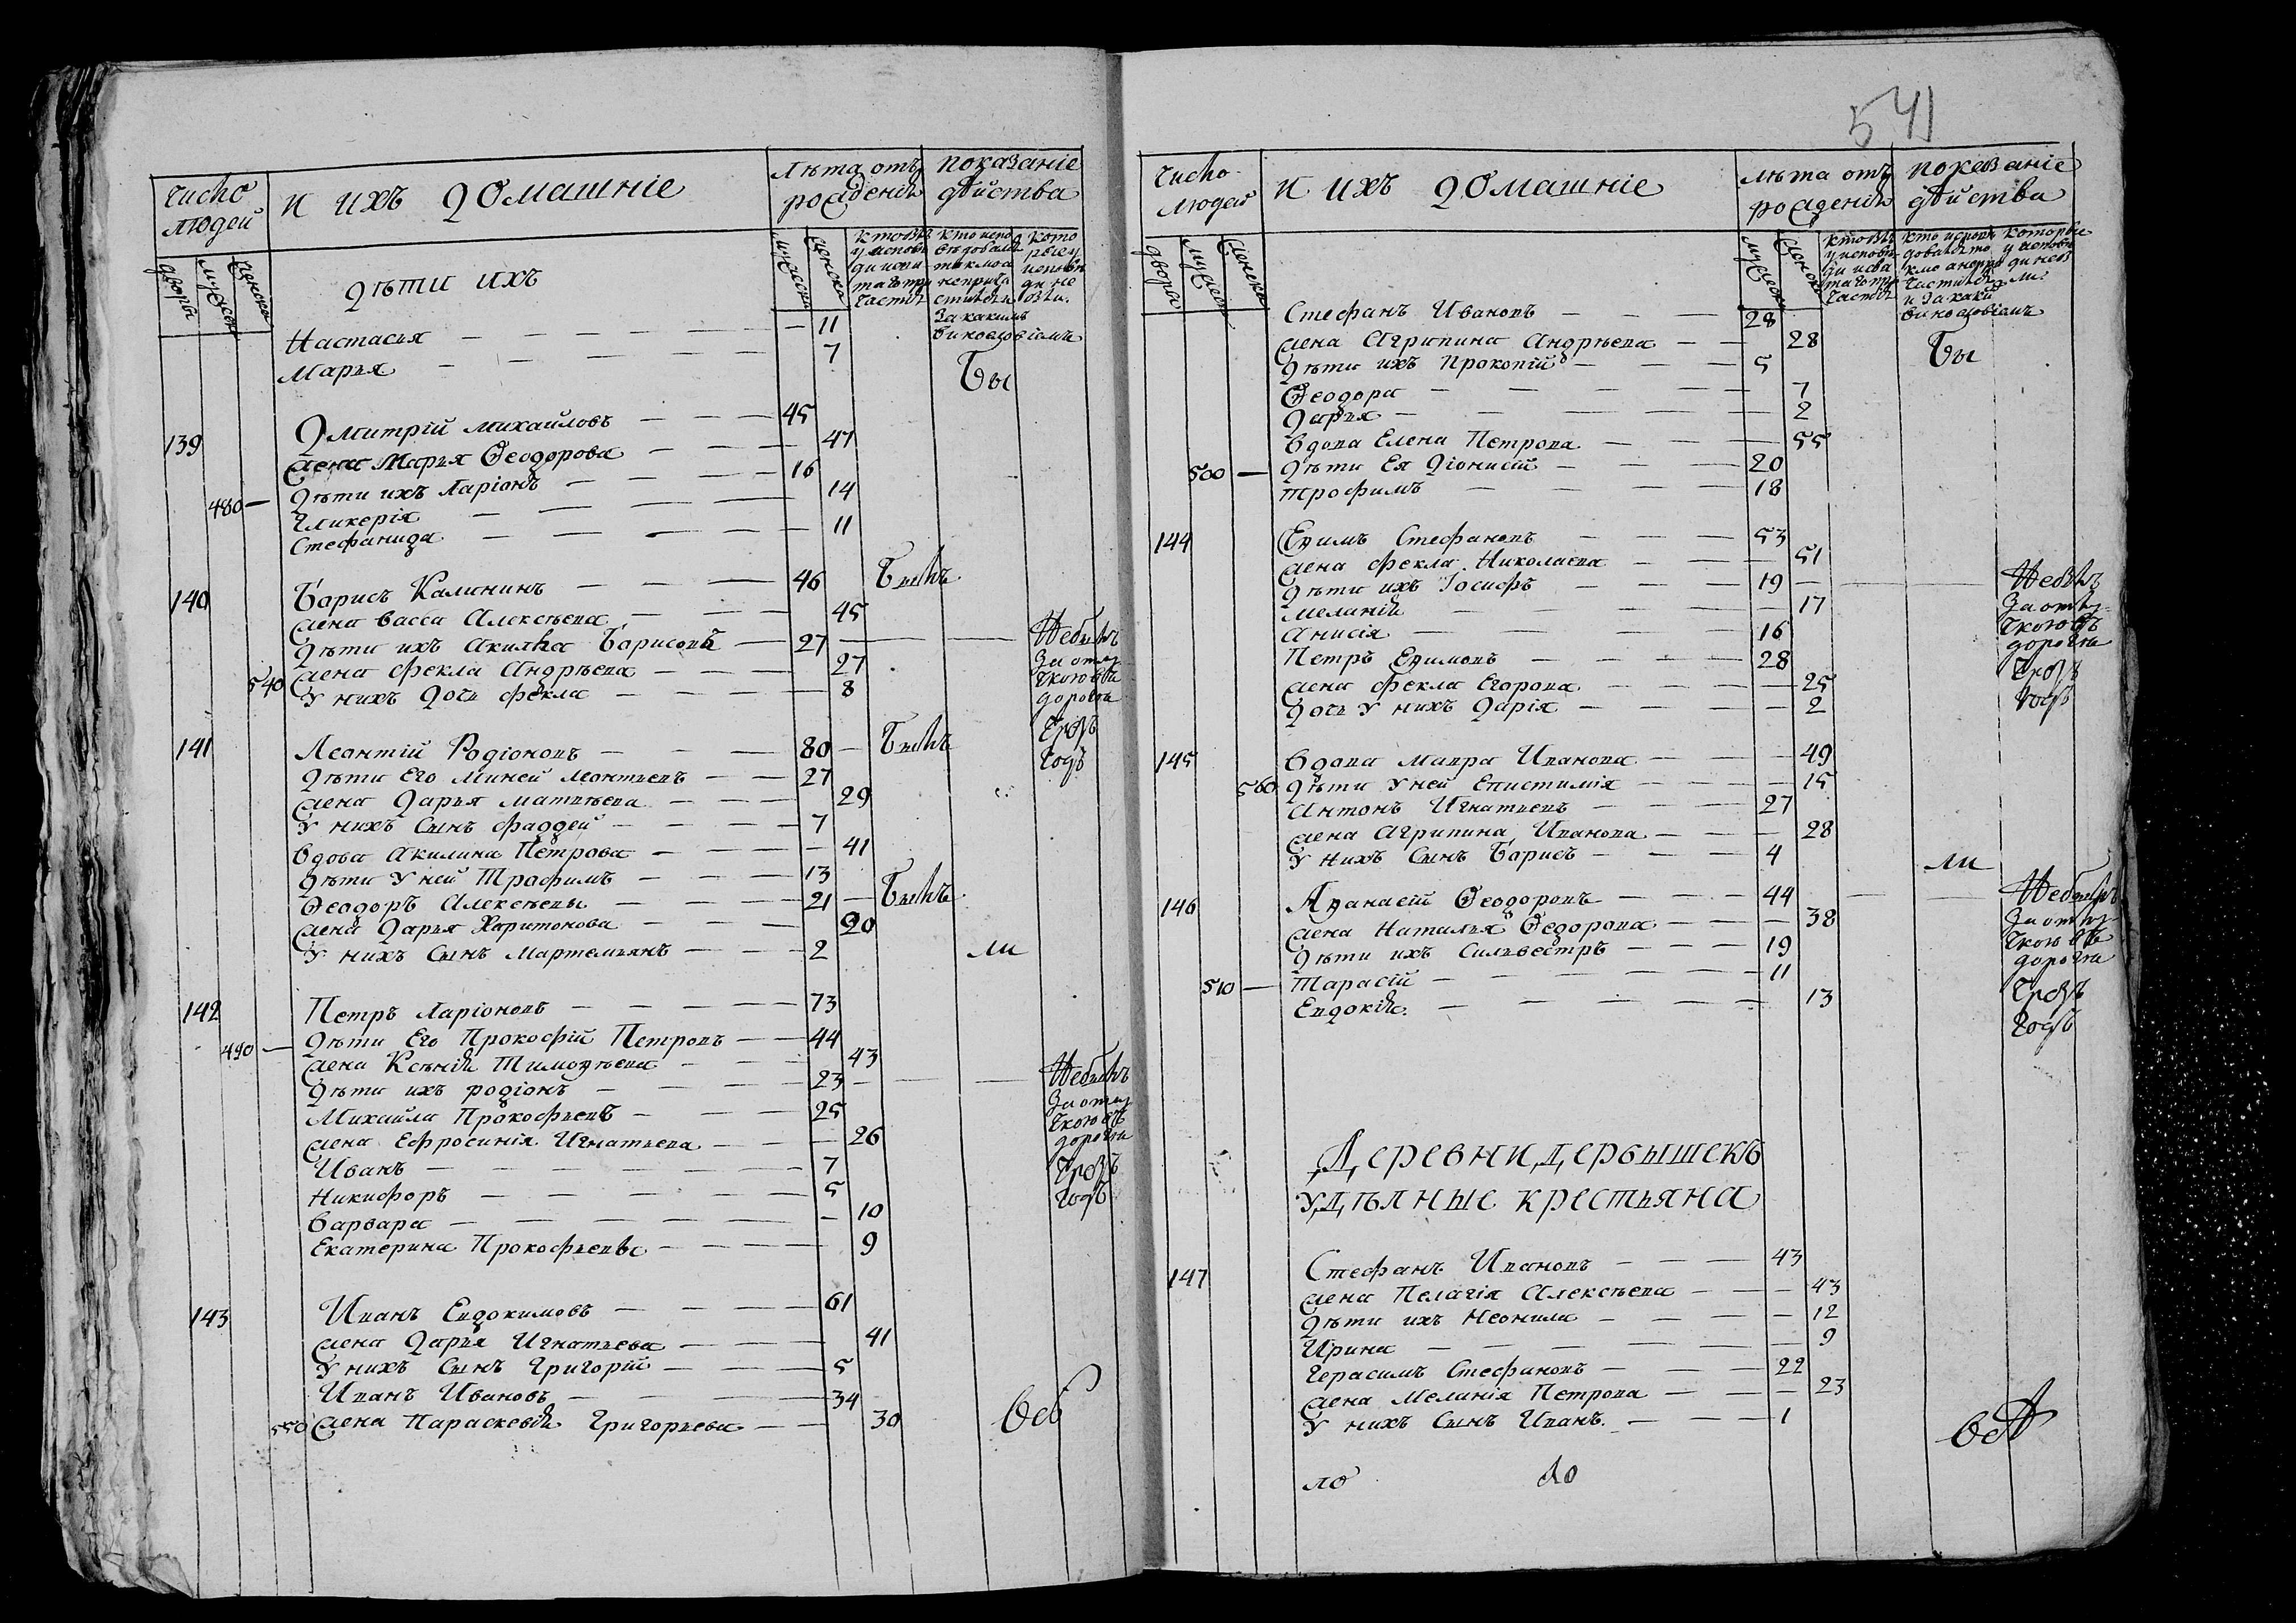 число людей
и ихъ домашніе
лѣта отъ рожденія
показаніе дѣйства
дворы
мужеск
женска
дѣти ихъ
мужеска
женска
Настасья — 11
Марья — 7
Бы
139 Дмитрій Михайловъ — 45
жена Марья Ѳеодорова — 47
480 — дѣти ихъ Ларіонъ — 16
Гликерія — 14
Стефанида — 11
140 Борисъ Калининъ — 46 Былъ
жена Васса Алексѣева — 45
дѣти ихъ Акилла Борисовъ — 27 — Небылъ
540 жена Фекла Андрѣева — 27 За отлу
У нихъ дочь Фекла — 8 чкою въ
дороги
Чрезъ
Годъ
141 Леонтій Родіоновъ — 80 — Былъ
дѣти Его Миней Леонтьевъ — 27
жена Дарья Матвѣева — 29
У нихъ Сынъ Фаддей — 7
Вдова Акилина Петрова — 41
дѣти У ней Трофимъ — 13
Ѳеодоръ Алексѣевъ — 21 — Былъ
жена Дарья Харитонова — 20
У нихъ Сынъ Мартемьянъ — 2
ли
142 Петръ Ларіоновъ — 73
490 — дѣти Его Прокофій Петровъ — 44
жена Ксенія Тимоѳѣева — 43
дѣти ихъ родіонъ — 23 — Небылъ
Михаила Прокофьевъ — 25 За отлу
жена Ефросинія Игнатьева — 26 чкою въ
дороги
Иванъ — 7 Чрезъ
Никифоръ — 5 Годъ
Варвара — 10
Екатерина Прокофьевы — 9
143 Иванъ Евдокимовъ — 61
жена Дарья Игнатьева — 41
У нихъ Сынъ Григорій — 5
Иванъ Ивановъ — 34
550 жена Параскевія Григорьева — 30
541
число людей
и ихъ домашніе
лѣта отъ рожденія
показаніе дѣйства
дворы
мужеск
женска
мужеск
женска
Стефанъ Ивановъ — 28
жена Агрипина Андрѣева — 28
дѣти ихъ Прокопій — 5
Бы
Ѳеодора — 7
Дарья — 2
Вдова Елена Петрова — 55
500 — дѣти Ея Діонисій — 20
Трофимъ — 18
144 Еѳимъ Стефановъ — 53
жена Фекла Николаева — 51
дѣти ихъ Іосифъ — 19 — Небылъ
Меланія — 17 За отлу
Анисія — 16 чкою въ
дороги
Петръ Еѳимовъ — 28 Чрезъ
жена Фекла Егорова — 25 Годъ
дочь У нихъ Дарія — 2
145 Вдова Мавра Иванова — 49
560 дѣти У ней Епистимія — 15
Антонъ Игнатьевъ — 27
жена Агрипина Иванова — 28
У нихъ Сынъ Борисъ — 4
ли
146 Аѳанасій Ѳеодоровъ — 44 — Небылъ
жена Наталья Ѳедорова — 38 За отлу
дѣти ихъ Сильвестръ — 19 чкою въ
510 — Тарасій — 11 дороги
Евдокія — 13 Чрезъ
Годъ
Деревни Дербышекъ
удѣлные крестьяна
147 Стефанъ Ивановъ — 43
жена Пелагія Алексѣева — 43
дѣти ихъ Неонила — 12
Ирина — 9
Герасимъ Стефановъ — 22
жена Меланія Петрова — 23
У нихъ Сынъ Иванъ — 1